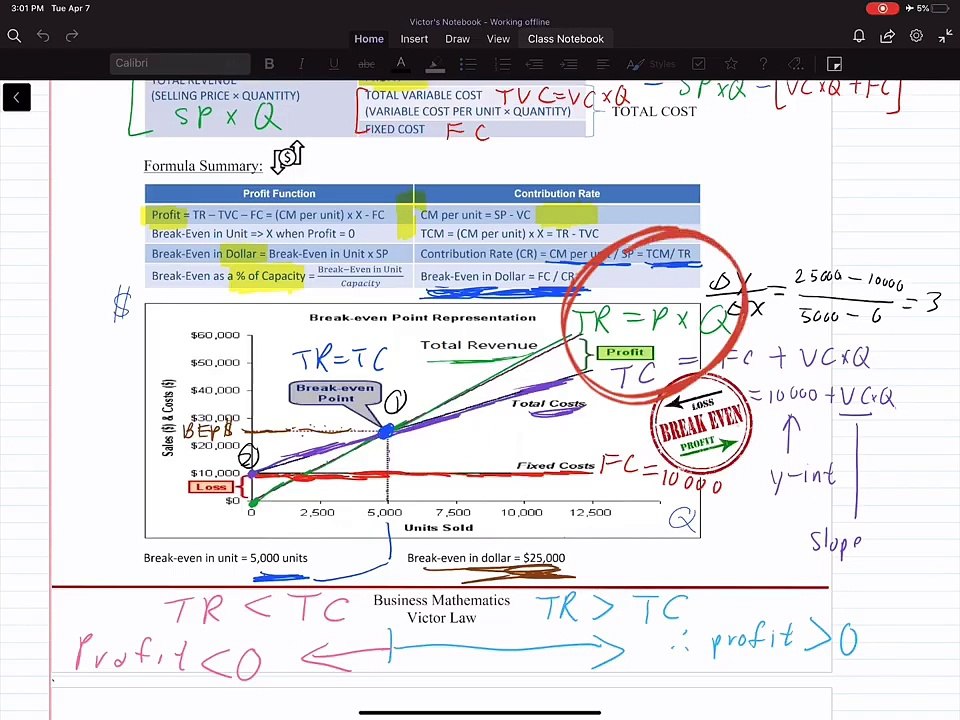 3:01 PM Tue Apr 7
5%
Victor's Notebook - Working offline
Home Insert Draw View Class Notebook
Calibri B I U abc A Styles
TOTAL REVENUE
(SELLING PRICE × QUANTITY)
SP x Q
TOTAL VARIABLE COST TVC=VC x Q
(VARIABLE COST PER UNIT × QUANTITY)
FIXED COST FC
TOTAL COST
- SPxQ - [VCxQ + FC]
Formula Summary:
Profit Function Contribution Rate
Profit = TR – TVC – FC = (CM per unit) x X - FC CM per unit = SP - VC
Break-Even in Unit => X when Profit = 0 TCM = (CM per unit) x X = TR - TVC
Break-Even in Dollar = Break-Even in Unit x SP Contribution Rate (CR) = CM per unit / SP = TCM/ TR
Break-Even as a % of Capacity = Break-Even in Unit / Capacity Break-Even in Dollar = FC / CR
ΔY/ΔX = 25000 - 10000 / 5000 - 0 = 3
$
Break-even Point Representation
TR = P x Q
$60,000
Total Revenue
Profit
TR=TC
$50,000
TC = FC + VCxQ
Break-even Point
①
$40,000
= 10000 + VCxQ
Total Costs
LOSS
BREAK EVEN
PROFIT
$30,000
BEP$
Sales ($) & Costs ($)
$20,000
②
$10,000
Fixed Costs FC = 10000
y-int
Loss
$0
0 2,500 5,000 7,500 10,000 12,500
Q
Units Sold
slope
Break-even in unit = 5,000 units Break-even in dollar = $25,000
TR < TC Business Mathematics TR > TC
Victor Law
Profit < 0 ∴ profit > 0